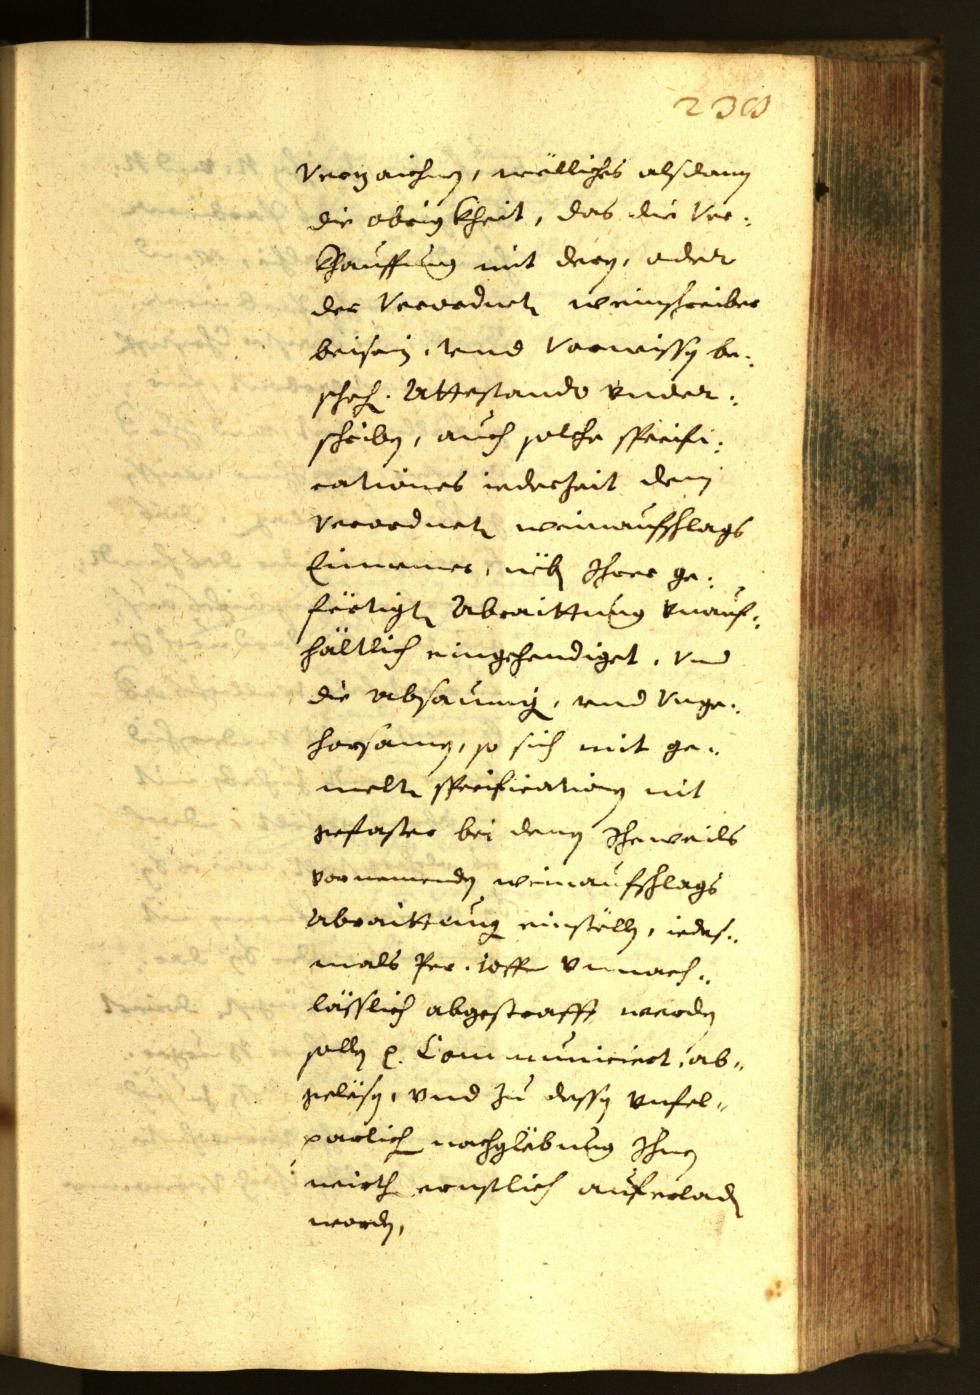 239
Verzaichnen, wölliches alsdann
die obrigkheit, das die Ver¬
khauffung mit deren, oder
der Verordneten weinschreiber
beisein, vnd Vorwissen be¬
schehen. Attestando vnder¬
schriben, auch solche specifi¬
cationes iederzeit dem
Verordneten weinaufschlags
Einnemer, neben Ihrer ge¬
förtigten Abraittung vnauf¬
hältlich eingehendiget, Vnd
die Absaumig, vnd Vnge¬
horsamen, so sich mit ge¬
melten specification nit
gefaster bei denen Iheweils
vornemenden weinaufschlags
Abraittung einstöllen, iedes¬
mals Per . vnnach¬
lässlich abgestrafft werden
sollen p. Communiciert, ab¬
gelesen, vnd zu dessen vnfel¬
parlich nachglebung Ihnen
wirthen ernstlich auferladen
worden,